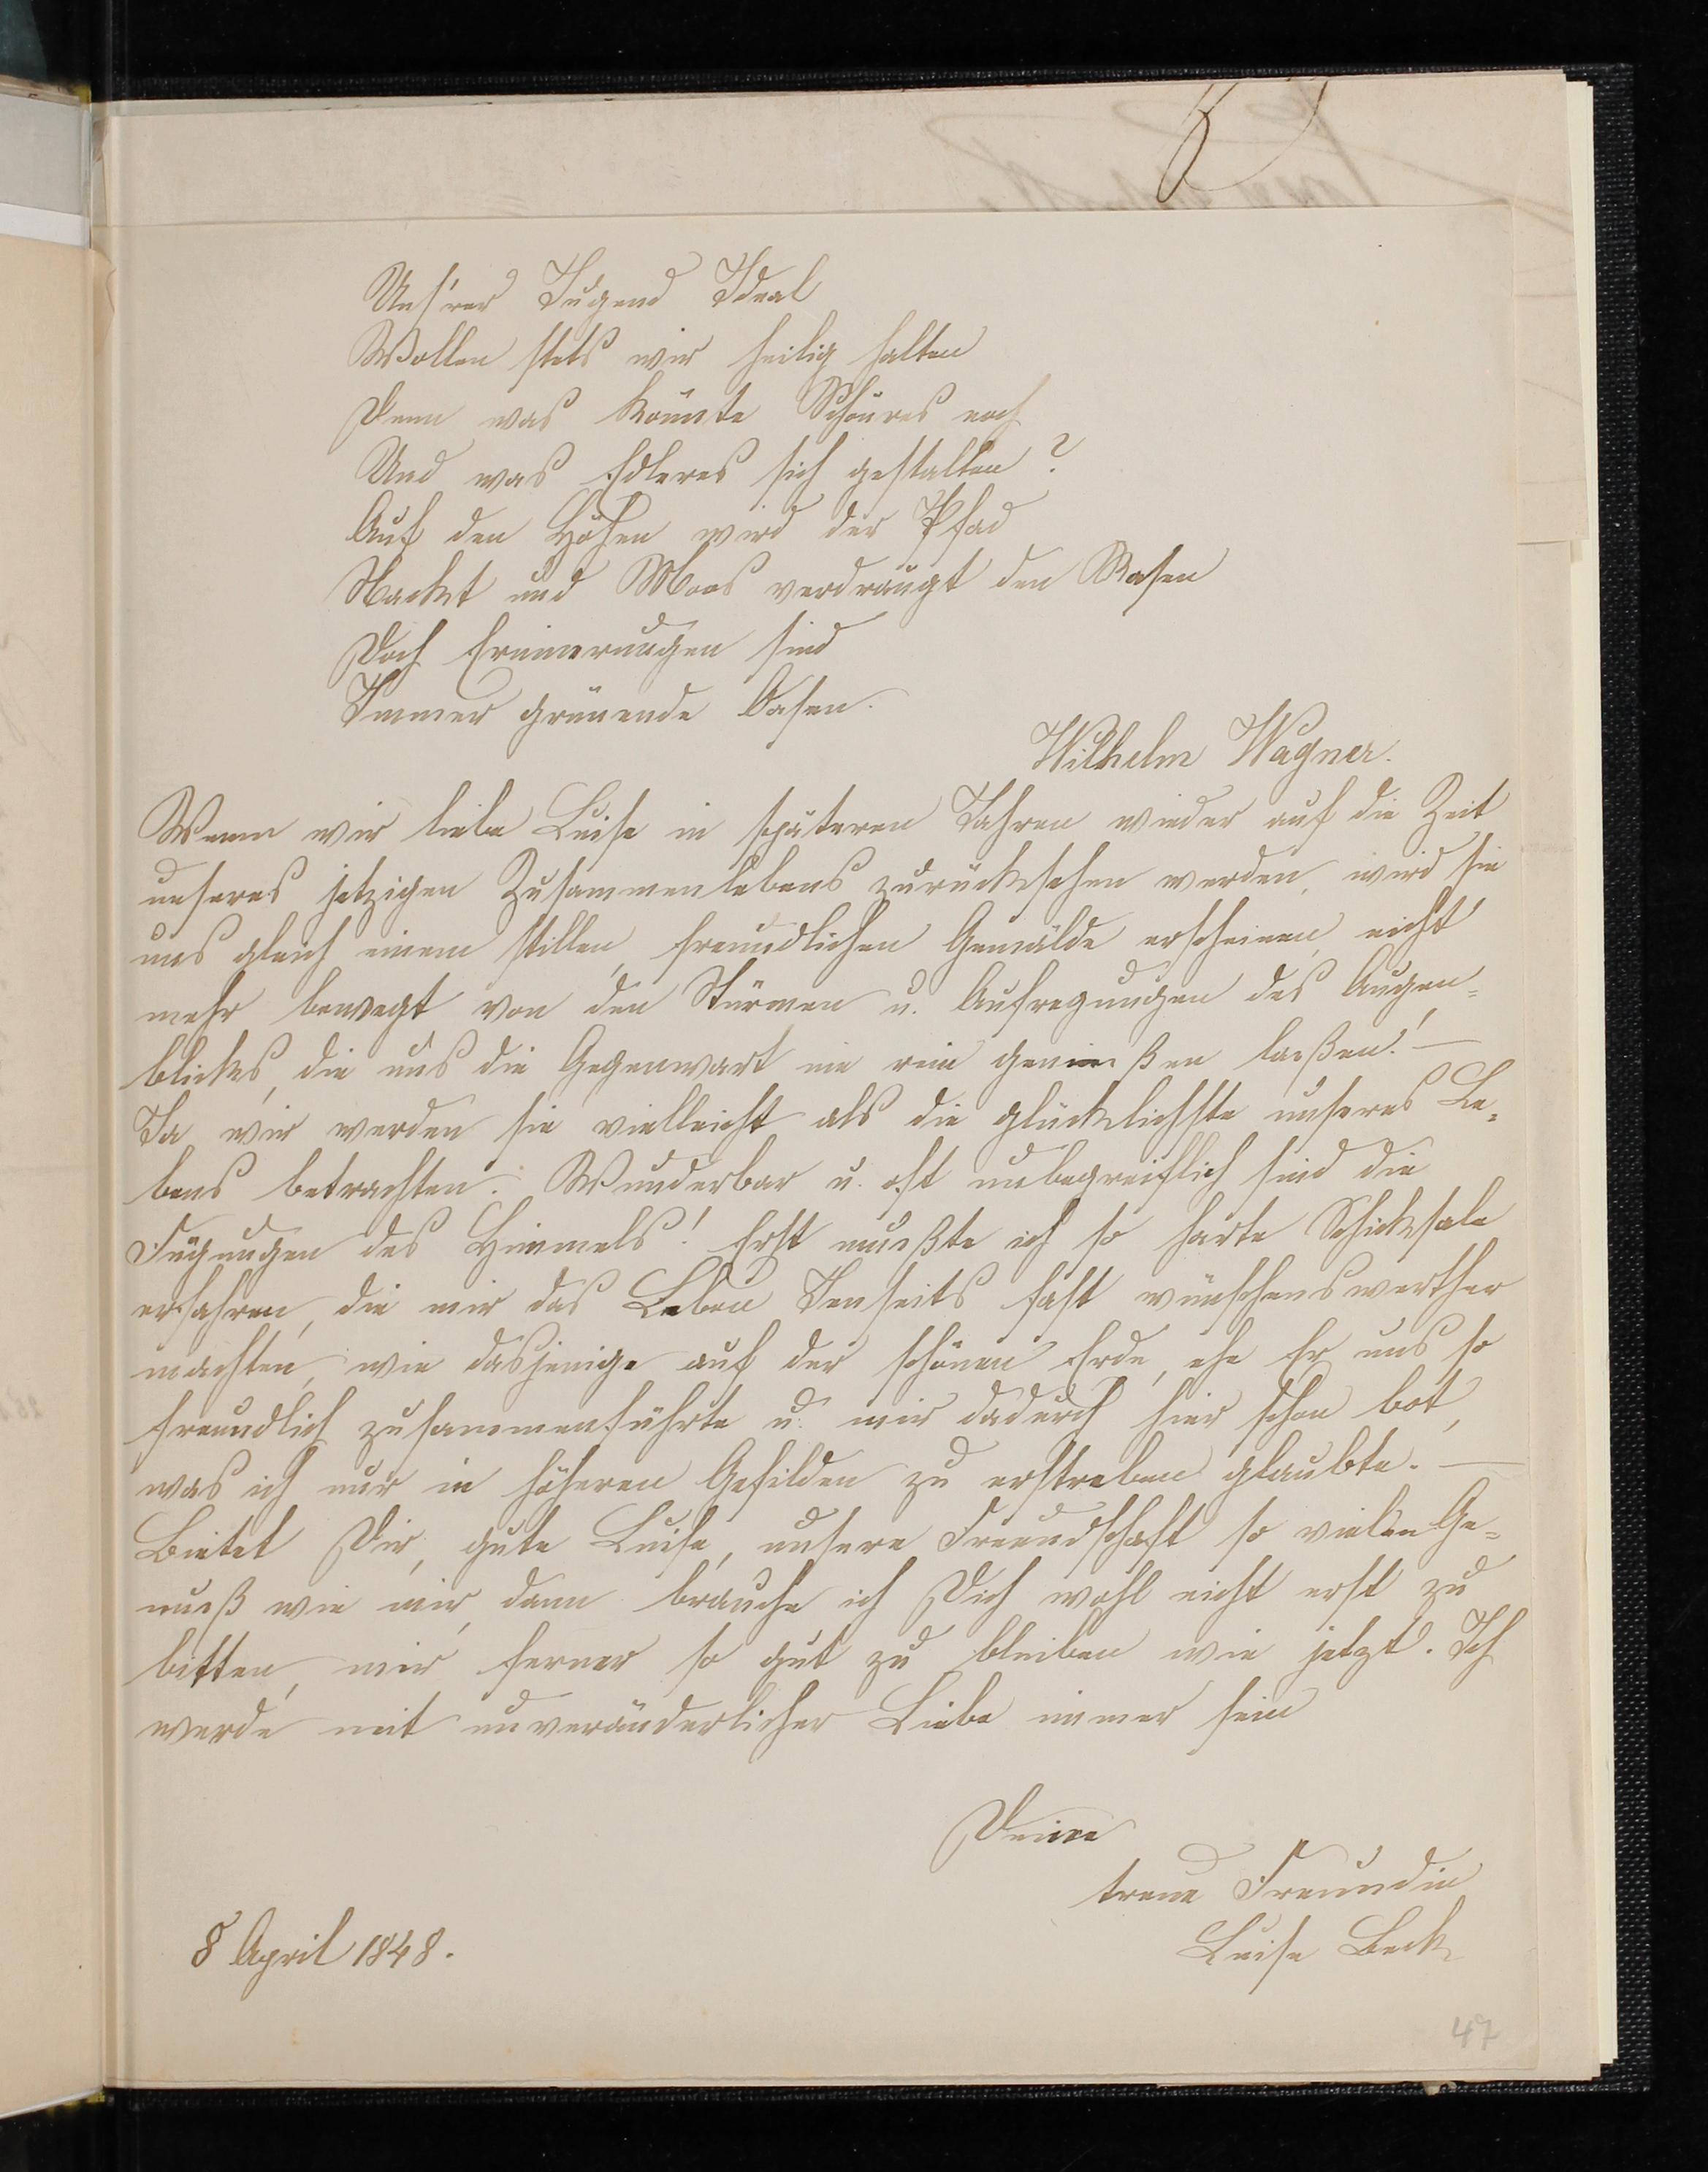 Uns'rer Jugend Ideal
Wollen stets wir heilig halten
Denn was könnte Schön'res noch
Und was Edleres sich gestalten?
Auf den Höhen wird der Pfad
Nackt und Moos verdrängt den Rasen
Doch Erinnerungen sind
Immer grünende Oasen.
Wilhelm Wagner.
Wenn wir liebe Luise in späteren Jahren wieder auf die Zeit
unseres jetzigen Zusammenlebens zurücksehen werden, wird sie
uns gleich einem stillen, freundlichen Gemälde erscheinen, nicht
mehr bewegt von den Stürmen u. Aufregungen des Augen=
blickes, die uns die Gegenwart nie rein genießen laßen! —
Ja wir werden sie vielleicht als die glücklichste unseres Le=
bens betrachten. Wunderbar u. oft unbegreiflich sind die
Fügungen des Himmels! Erst mußte ich so harte Schicksale
erfahren, die mir das Leben Jenseits fast wünschenswerther
machten, wie dasjenige auf der schönen Erde, ehe Er uns so
freundlich zusammenführte u. mir dadurch hier schon bot,
was ich nur in höheren Gefilden zu erstreben glaubte. —
Bietet Dir, gute Luise, unsere Freundschaft so vielen Ge=
nuß wie mir, dann brauche ich Dich wohl nicht erst zu
bitten, mir ferner so gut zu bleiben wie jetzt. Ich
werde mit unveränderlicher Liebe immer sein
Deine
treue Freundin
Luise Beck
8 April 1848.
47